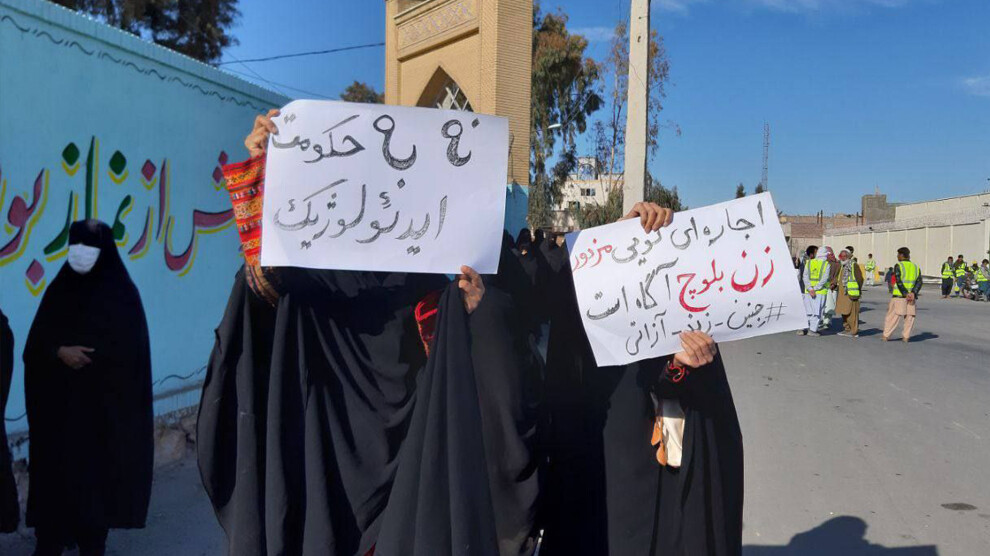 نه به حکومت
ایدئولوژیک
اجاره‌ای گویی مزدور
زن بلوچ آگاه است
#جنین-زند-آزاتی
از نماز